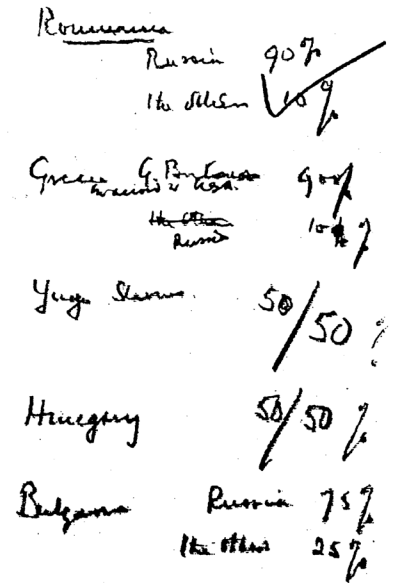 Roumania
Russia 90%
the others 10%
Greece G. Britain 90%
in accord with USA.
the others
Russia 10%
Yugo Slavia 50/50 %
Hungary 50/50 %
Bulgaria Russia 75%
the others 25%